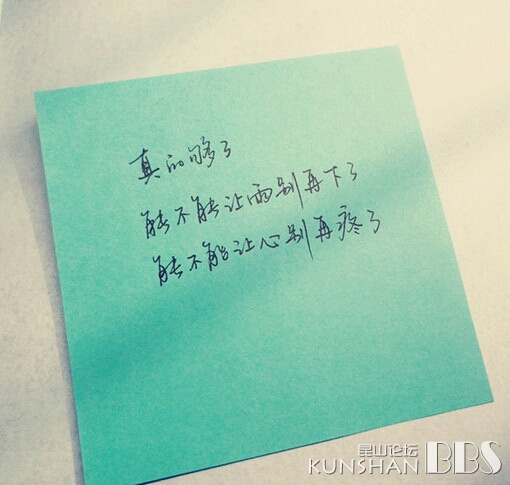 真的够了
能不能让雨别再下了
能不能让心别再疼了
昆山论坛
KUNSHAN BBS